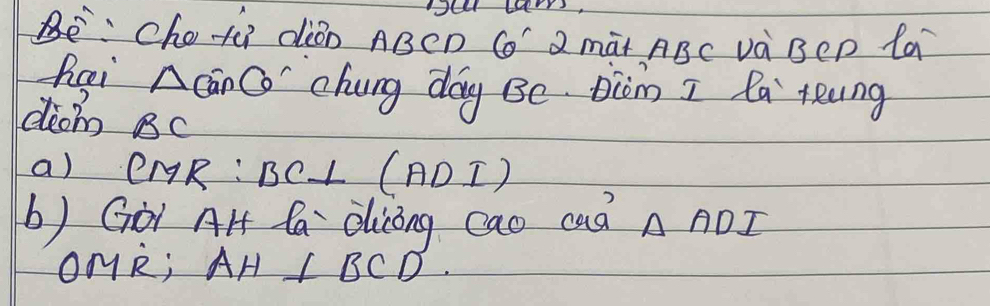 Bề: Cho tứ diện ABCD có 2 mặt ABC và BCD là
hai Δ cân có chung đáy BC. Điểm I là trung
điểm BC
a) CMR: BC⊥ (ADI)
b) Gọi AH là đường cao của Δ ADI
CMR; AH ⊥ BCD.